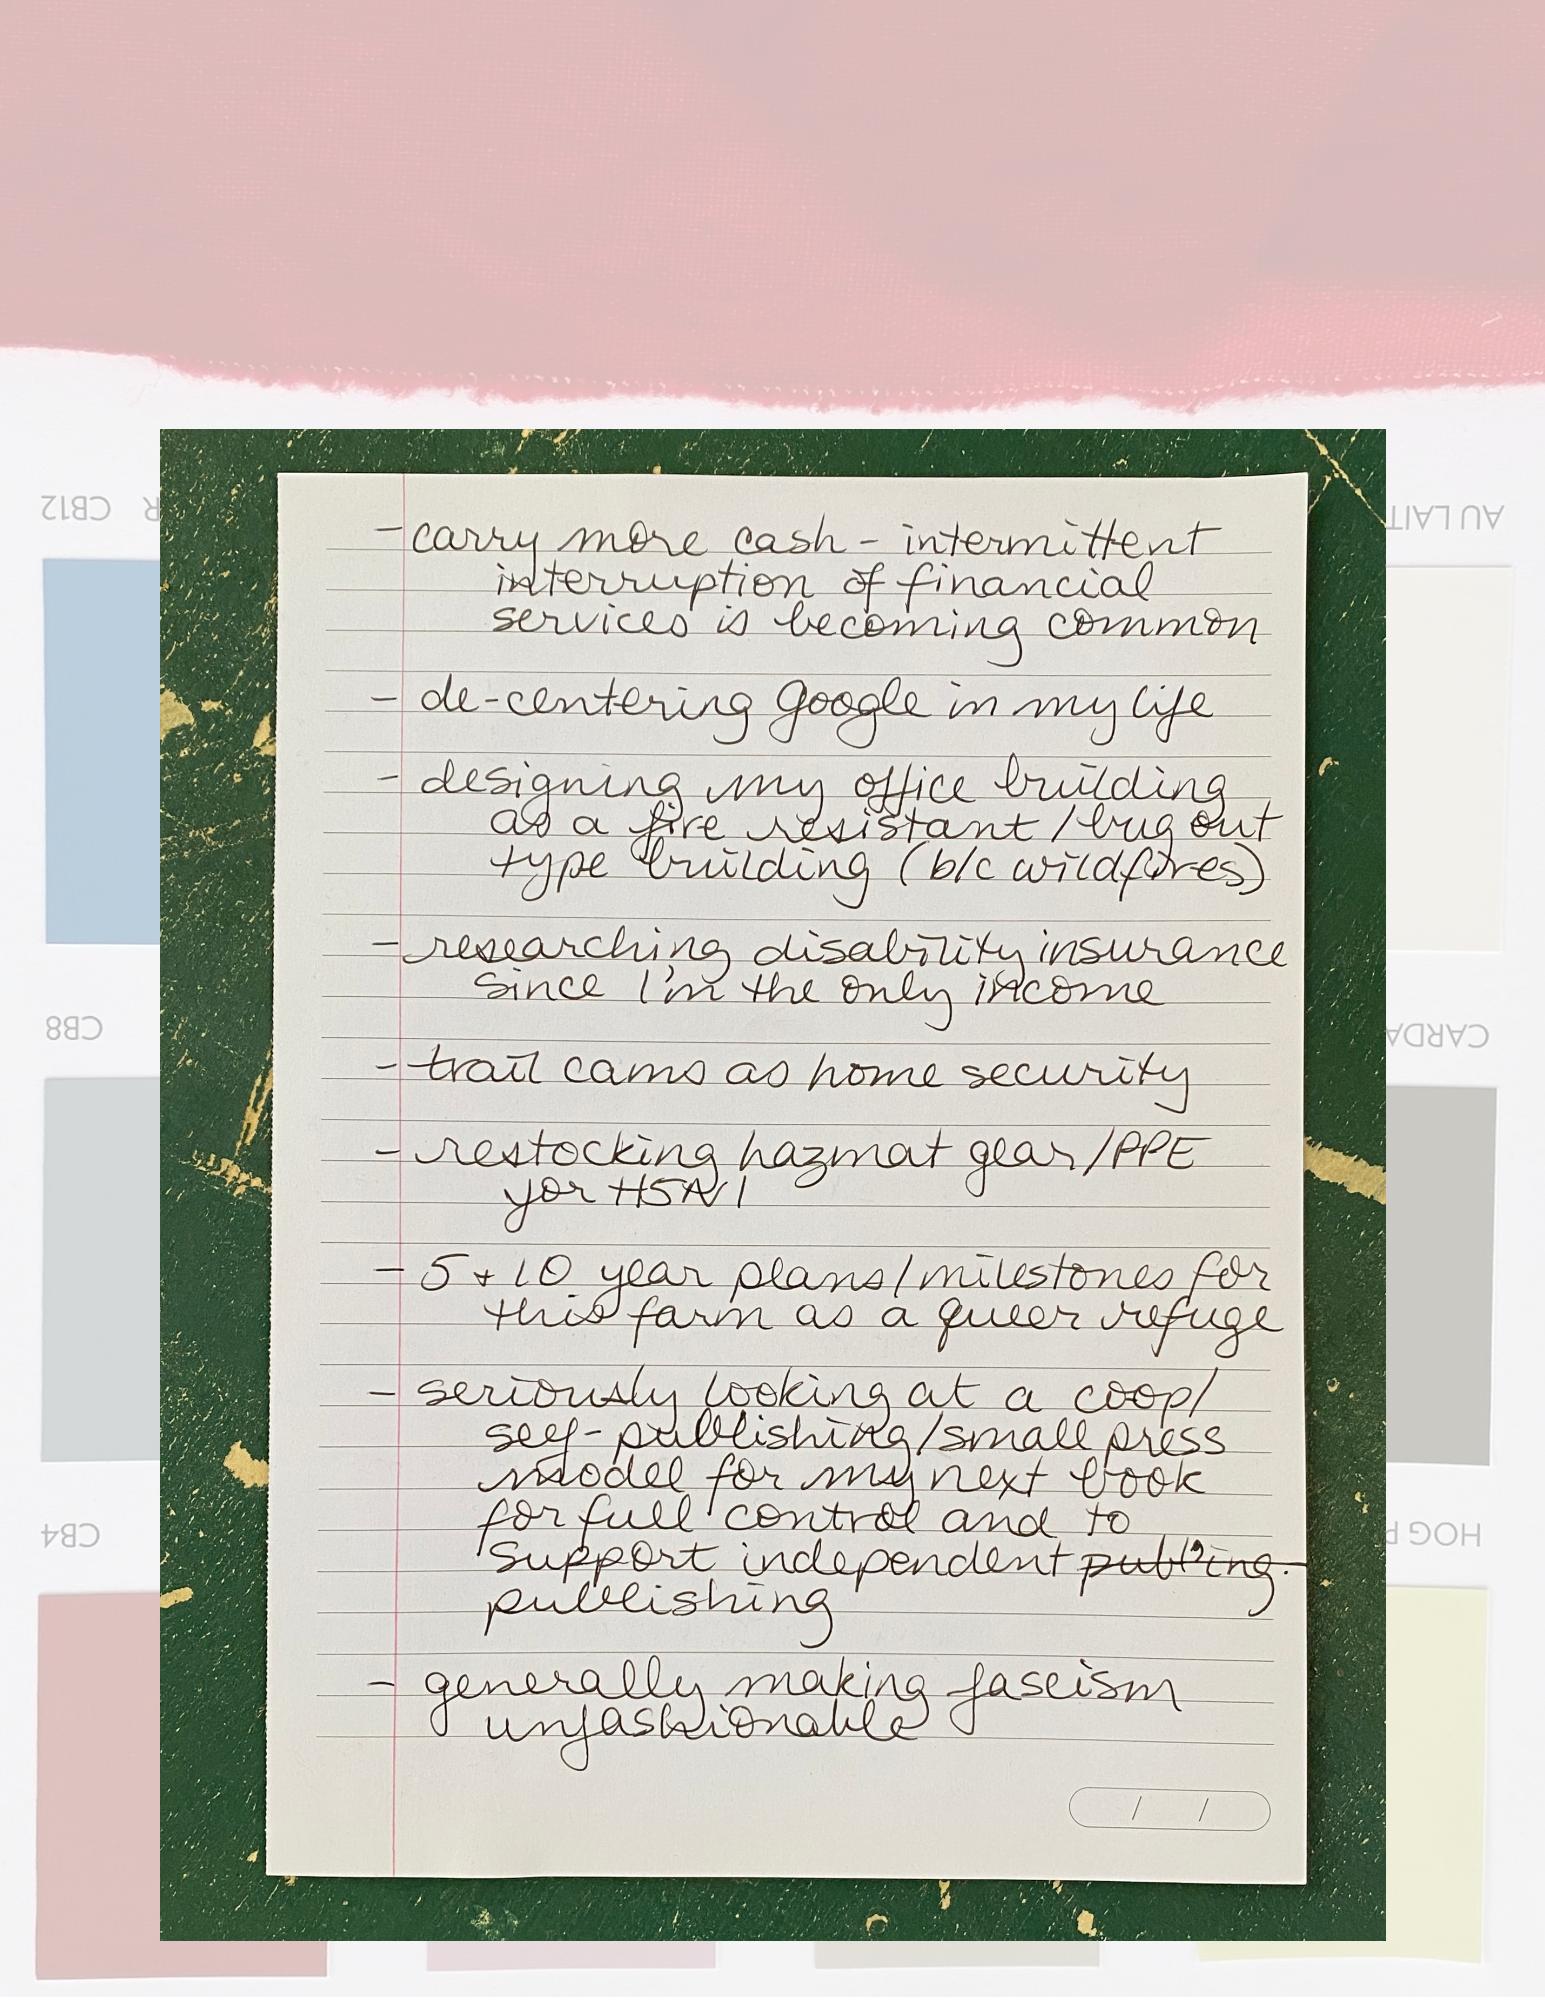 CB12 R
AU LAIT
- carry more cash - intermittent
interruption of financial
services is becoming common
- de-centering Google in my life
- designing my office building
as a fire resistant / bug out
type building (b/c wildfires)
- researching disability insurance
since I'm the only income
- trail cams as home security
- restocking hazmat gear/PPE
for H5N1
- 5 + 10 year plans/milestones for
this farm as a queer refuge
- seriously looking at a coop/
self-publishing/small press
model for my next book
for full control and to
support independent
publishing
- generally making fascism
unfashionable
/ /
CB8
CARDA
CB4
HOG P